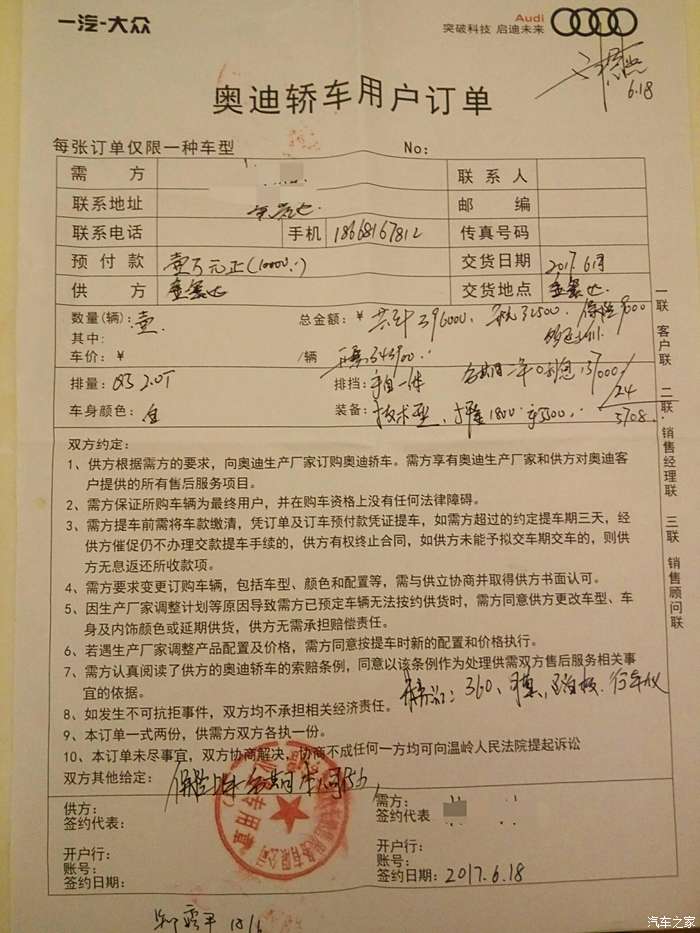 一汽-大众
Audi
突破科技 启迪未来
6.18
奥迪轿车用户订单
每张订单仅限一种车型 No:
需方 联系人
联系地址 邮编
联系电话 手机 18668167812 传真号码
预付款 壹万元正(10000.) 交货日期 2017.6月
供方 交货地点
数量(辆): 壹. 总金额: ¥ 共计396000. 32500. 保险9000
其中:
车价: ¥ /辆 344900.
排量: Q5 2.0T 排挡: 手自一体 137000/24
车身颜色: 白 装备: 技术型 1800 5500. 5708.
一联 客户联 二联 销售经理联 三联 销售顾问联
双方约定:
1、供方根据需方的要求,向奥迪生产厂家订购奥迪轿车。需方享有奥迪生产厂家和供方对奥迪客
户提供的所有售后服务项目。
2、需方保证所购车辆为最终用户,并在购车资格上没有任何法律障碍。
3、需方提车前需将车款缴清,凭订单及订车预付款凭证提车,如需方超过的约定提车期三天,经
供方催促仍不办理交款提车手续的,供方有权终止合同,如供方未能予拟交车期交车的,则供
方无息返还所收款项。
4、需方要求变更订购车辆,包括车型、颜色和配置等,需与供立协商并取得供方书面认可。
5、因生产厂家调整计划等原因导致需方已预定车辆无法按约供货时,需方同意供方更改车型、车
身及内饰颜色或延期供货,供方无需承担赔偿责任。
6、若遇生产厂家调整产品配置及价格,需方同意按提车时新的配置和价格执行。
7、需方认真阅读了供方的奥迪轿车的索赔条例,同意以该条例作为处理供需双方售后服务相关事
宜的依据。
360、行车仪
8、如发生不可抗拒事件,双方均不承担相关经济责任。
9、本订单一式两份,供需方双方各执一份。
10、本订单未尽事宜,双方协商解决,协商不成任何一方均可向温岭人民法院提起诉讼
双方其他给定:
专用章
供方: 需方:
签约代表: 签约代表
开户行: 开户行:
账号: 账号:
签约日期: 签约日期: 2017.6.18
汽车之家